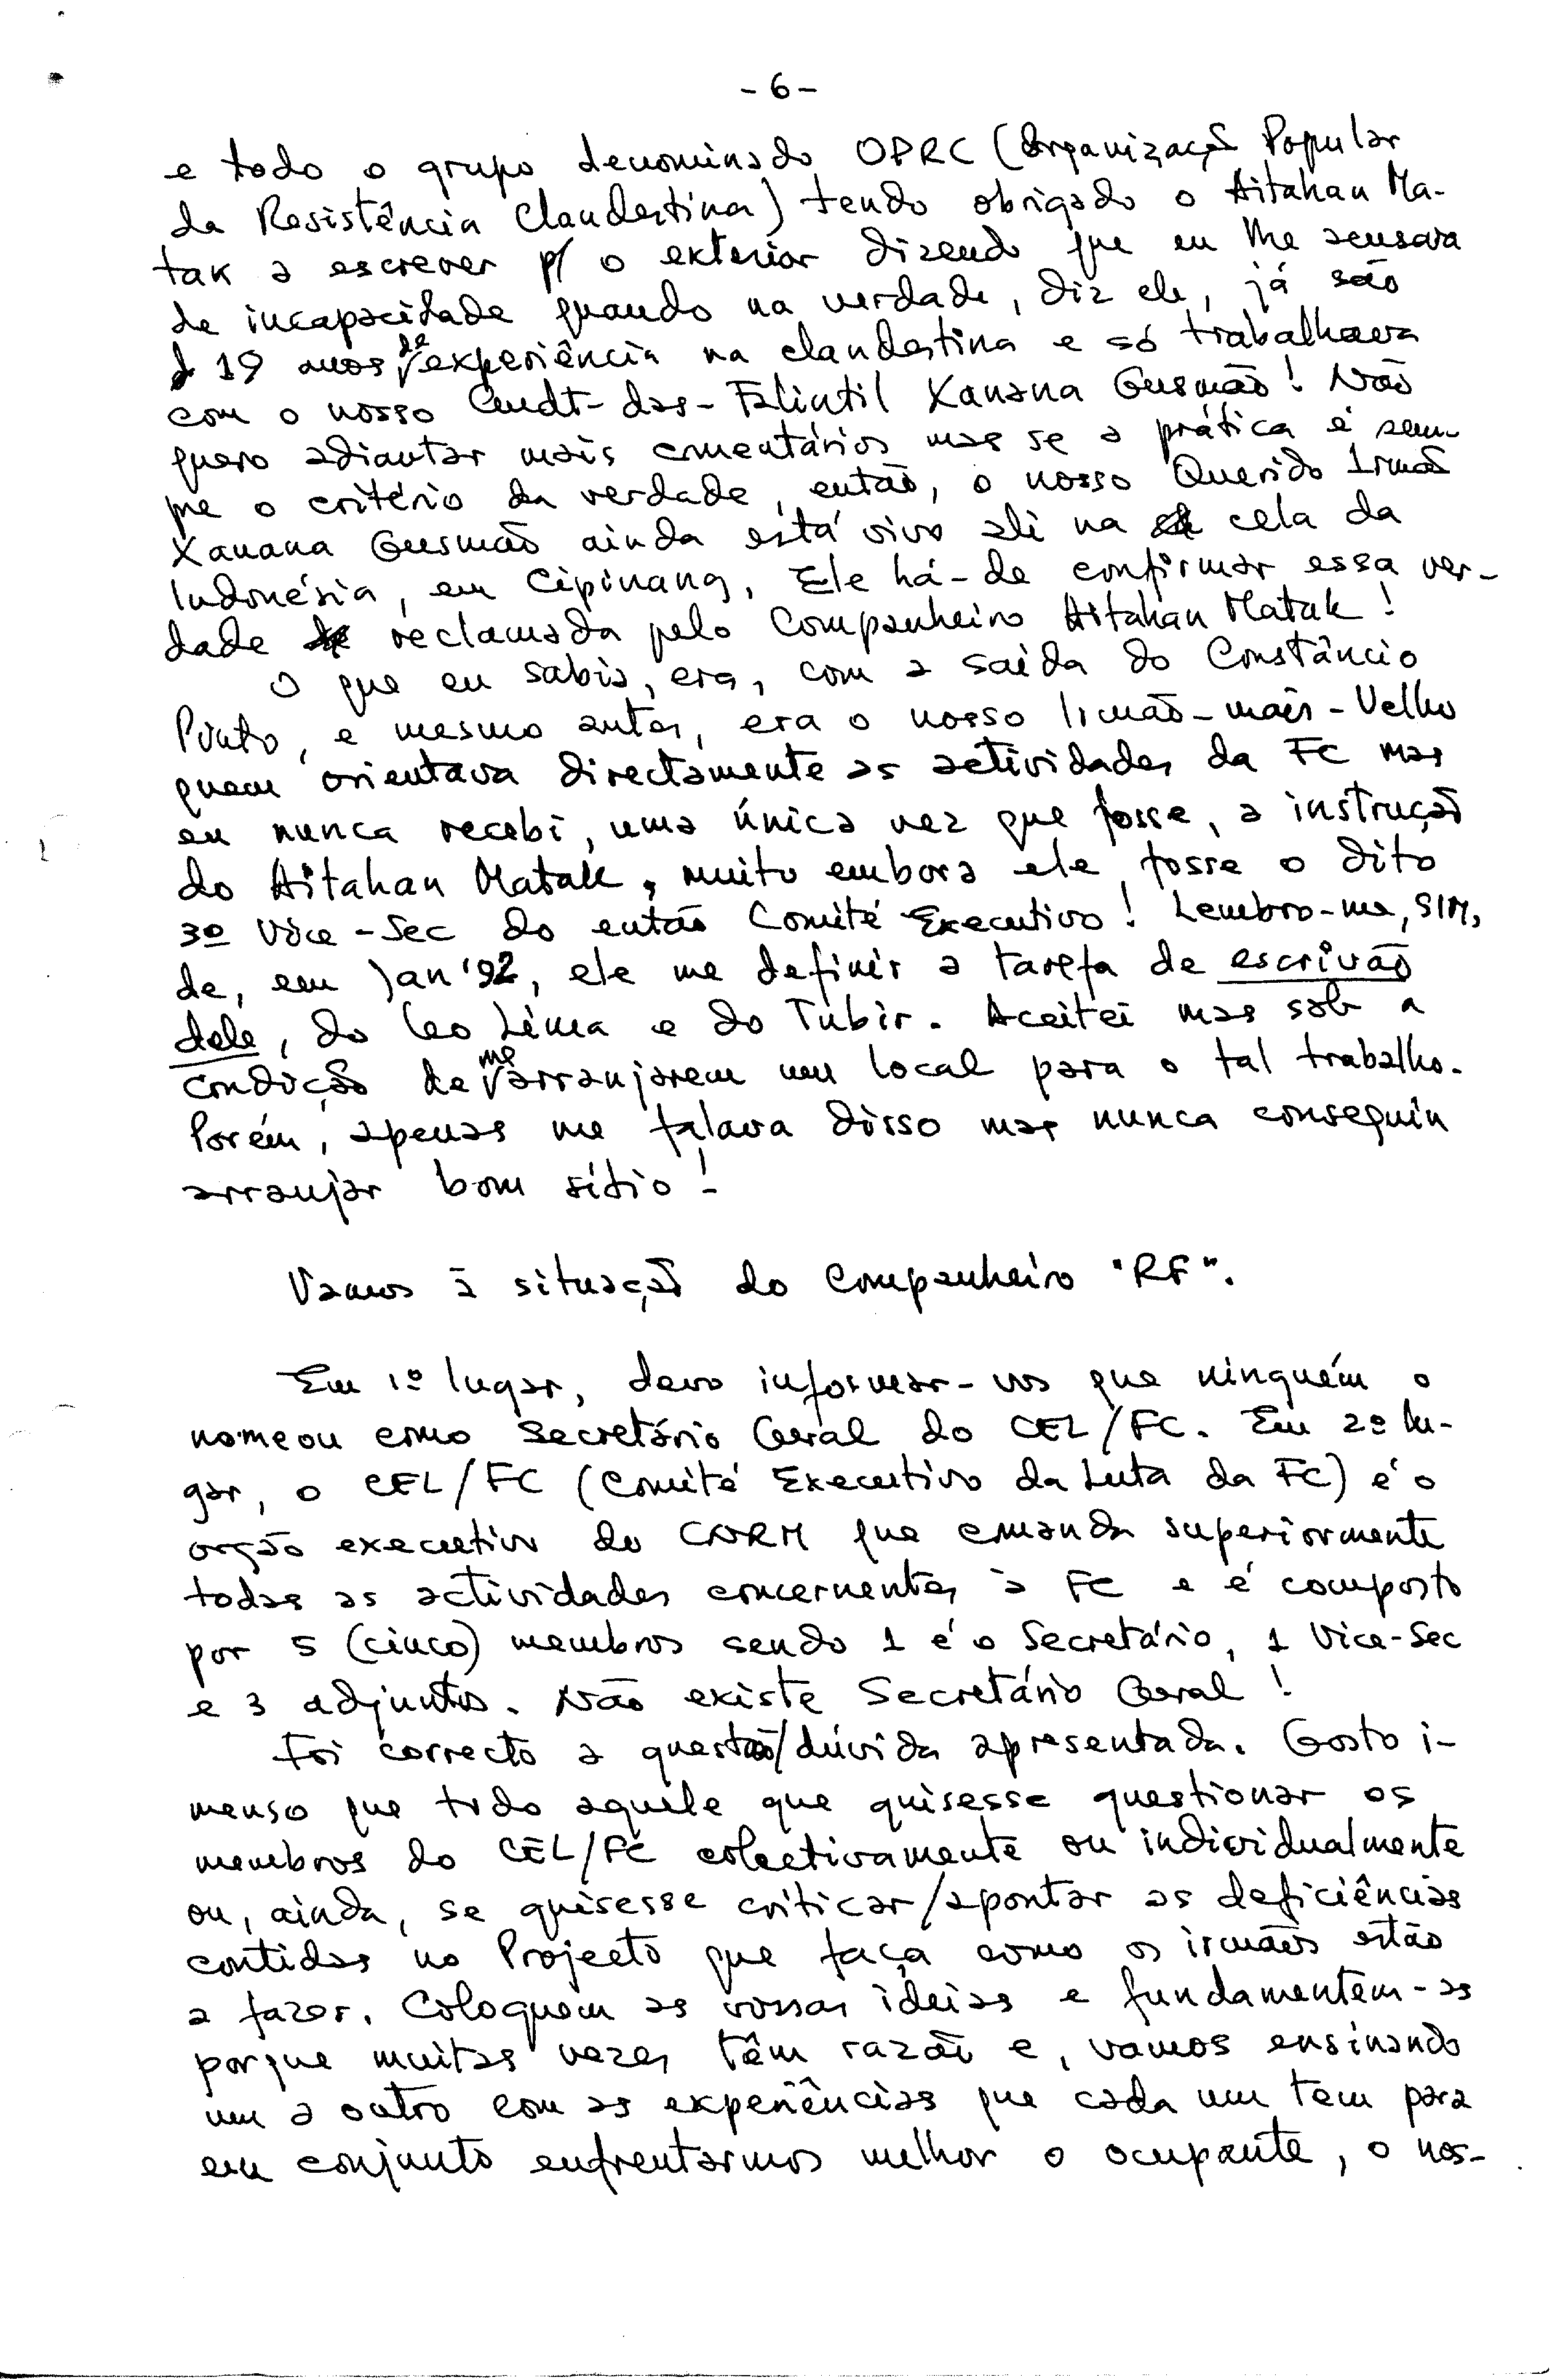 - 6 -
e todo o grupo denominado OPRC (Organização Popular
da Resistência Clandestina) tendo obrigado o Aitahan Ma-
tak a escrever p/ o exterior dizendo que eu lhe acusava
de incapacidade quando na verdade, diz ele, já são
19 anos de experiência na clandestina e só trabalhava
com o nosso Cmdt-das-Falintil Xanana Gusmão! Não
quero adiantar mais comentários mas se a prática é sem-
pre o critério da verdade, então, o nosso Querido Irmão
Xanana Gusmão ainda está vivo ali na cela da
Indonésia, em Cipinang, Ele há-de confirmar essa ver-
dade reclamada pelo Companheiro Aitahan Matak!
O que eu sabia, era, com a saída do Constâncio
Pinto, e mesmo antes, era o nosso Irmão-mais-Velho
quem orientava directamente as actividades da FC mas
eu nunca recebi, uma única vez que fosse, a instrução
do Aitahan Matak, muito embora ele fosse o dito
3º Vice-Sec do então Comité Executivo! Lembro-me, SIM,
de, em Jan'92, ele me definir a tarefa de escrivão
dele, do Leo Lima e do Tubir. Aceitei mas sob a
condição de me arranjarem um local para o tal trabalho.
Porém, apenas me falava disso mas nunca conseguiu
arranjar bom sítio!
Vamos à situação do Companheiro "RF".
Em 1º lugar, devo informar-vos que ninguém o
nomeou como Secretário Geral do CEL/FC. Em 2º lu-
gar, o CEL/FC (Comité Executivo da Luta da FC) é o
orgão executivo do CNRM que comanda superiormente
todas as actividades concernentes à FC e é composto
por 5 (cinco) membros sendo 1 é o Secretário, 1 Vice-Sec
e 3 adjuntos. Não existe Secretário Geral!
Foi correcto a questão/dúvida apresentada. Gosto i-
menso que todo aquele que quisesse questionar os
membros do CEL/FC colectivamente ou individualmente
ou, ainda, se quisesse criticar/apontar as deficiências
contidas no Projecto que faça como os irmãos estão
a fazer. Coloquem as vossas ideias e fundamentem-as
porque muitas vezes têm razão e, vamos ensinando
um a outro com as experiências que cada um tem para
em conjunto enfrentarmos melhor o ocupante, o nos-